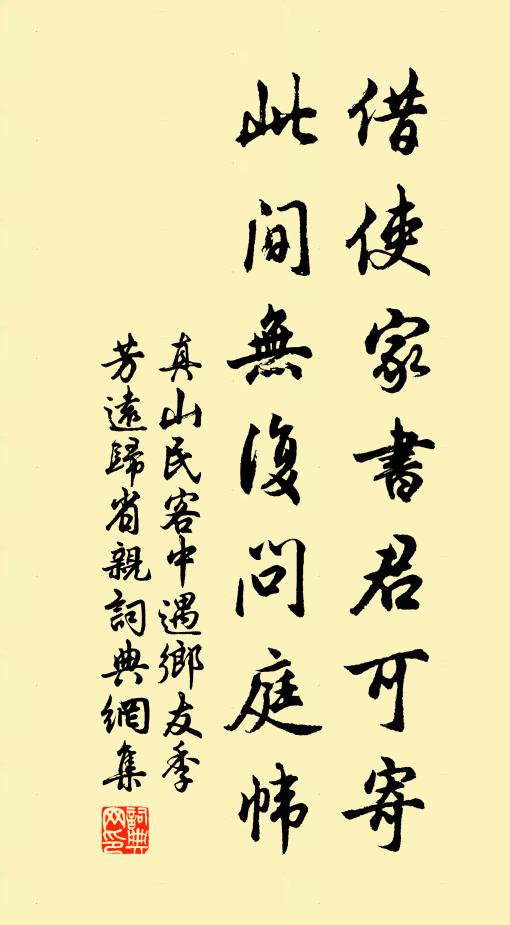 借使家書君可寄
此間無復問庭帏
真山民客中遇鄉友季
芳遠歸省親詞典網集
詞典
网印